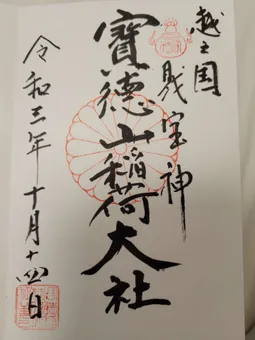 越之国
財宝神
寳德山稲荷大社
令和三年十月十四日